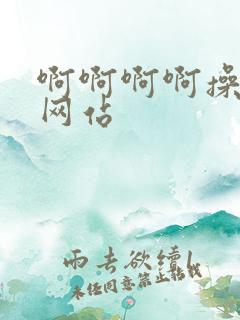 啊啊啊啊操
网站
雨去欲续
未经同意禁止转载